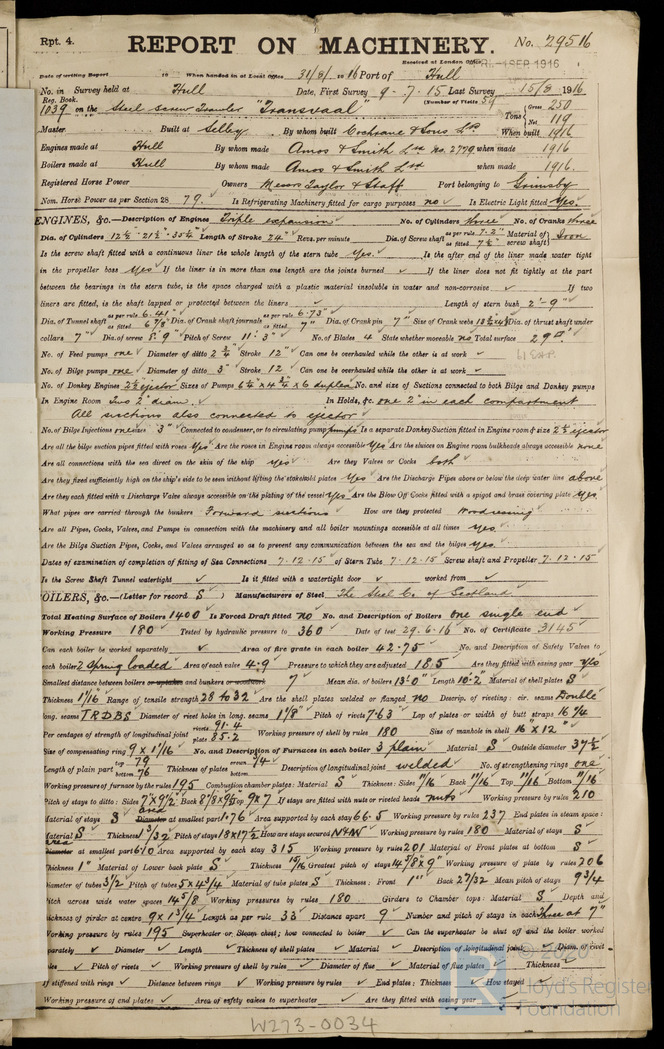 Rpt. 4.
REPORT ON MACHINERY. No. 29516
Received at London Office 1 SEP 1916
Date of writing Report 19 When handed in at Local Office 31/8/ 1916 Port of Hull
No. in Survey held at Hull Date, First Survey 9.7.15 Last Survey 15/8 1916
Reg. Book. (Number of Visits 59
1039 on the Steel Screw Trawler "Transvaal" Tons Gross 250 Net 119
Master Built at Selby By whom built Cochrane & Sons Ld When built 1916
Engines made at Hull By whom made Amos & Smith Ld No. 2779 when made 1916
Boilers made at Hull By whom made Amos & Smith Ld when made 1916.
Registered Horse Power Owners Messrs Taylor & Staff Port belonging to Grimsby
Nom. Horse Power as per Section 28 79. Is Refrigerating Machinery fitted for cargo purposes no Is Electric Light fitted Yes.
ENGINES, &c.—Description of Engines Triple expansion No. of Cylinders three No. of Cranks three
Dia. of Cylinders 12½"-21½"-35½" Length of Stroke 24" Revs. per minute Dia. of Screw shaft as per rule 7.2" as fitted 7½" Material of screw shaft Iron
Is the screw shaft fitted with a continuous liner the whole length of the stern tube Yes. Is the after end of the liner made water tight
in the propeller boss Yes If the liner is in more than one length are the joints burned ✓ If the liner does not fit tightly at the part
between the bearings in the stern tube, is the space charged with a plastic material insoluble in water and non-corrosive ✓ If two
liners are fitted, is the shaft lapped or protected between the liners ✓ Length of stern bush 2'-9"
Dia. of Tunnel shaft as per rule 6.41" as fitted 6⅞" Dia. of Crank shaft journals as per rule 6.73" as fitted 7" Dia. of Crank pin 7" Size of Crank webs Dia. of thrust shaft under
collars 7" Dia. of screw 8'.9" Pitch of Screw 11'.3" No. of Blades 4 State whether moveable no Total surface 29 □'
No. of Feed pumps one Diameter of ditto Stroke 12" Can one be overhauled while the other is at work ✓
No. of Bilge pumps one Diameter of ditto 3" Stroke 12 Can one be overhauled while the other is at work ✓
No. of Donkey Engines 2½ ejector Sizes of Pumps 6½ x 4¾ x 6 duplex No. and size of Suctions connected to both Bilge and Donkey pumps
In Engine Room Two 2" diam. In Holds, &c. one 2" in each compartment
All suctions also connected to ejector
No. of Bilge Injections one sizes 3" Connected to condenser, or to circulating pump pump Is a separate Donkey Suction fitted in Engine room & size 2½ ejector
Are all the bilge suction pipes fitted with roses Yes Are the roses in Engine room always accessible Yes Are the sluices on Engine room bulkheads always accessible none
Are all connections with the sea direct on the skin of the ship yes Are they Valves or Cocks both
Are they fixed sufficiently high on the ship's side to be seen without lifting the stokehold plates Yes Are the Discharge Pipes above or below the deep water line above
Are they each fitted with a Discharge Valve always accessible on the plating of the vessel Yes Are the Blow Off Cocks fitted with a spigot and brass covering plate Yes
What pipes are carried through the bunkers Forward suctions How are they protected Wood casing
Are all Pipes, Cocks, Valves, and Pumps in connection with the machinery and all boiler mountings accessible at all times Yes.
Are the Bilge Suction Pipes, Cocks, and Valves arranged so as to prevent any communication between the sea and the bilges Yes.
Dates of examination of completion of fitting of Sea Connections 7.12.15 of Stern Tube 7.12.15 Screw shaft and Propeller 7.12.15
Is the Screw Shaft Tunnel watertight ✓ Is it fitted with a watertight door ✓ worked from ✓
OILERS, &c.—(Letter for record S ) Manufacturers of Steel The Steel Co. of Scotland
Total Heating Surface of Boilers 1400 Is Forced Draft fitted no No. and Description of Boilers one single end
Working Pressure 180 Tested by hydraulic pressure to 360 Date of test 29.6.16 No. of Certificate 3145
Can each boiler be worked separately ✓ Area of fire grate in each boiler 42.75 No. and Description of Safety Valves to
each boiler 2 Spring loaded Area of each valve 4.9 Pressure to which they are adjusted 185 Are they fitted with easing gear yes
Smallest distance between boilers or uptakes and bunkers or woodwork 7 Mean dia. of boilers 13'.0" Length 10'.2" Material of shell plates S
Thickness 1 1/16 Range of tensile strength 28 to 32 Are the shell plates welded or flanged no Descrip. of riveting: cir. seams Double
long. seams TRDBS Diameter of rivet holes in long. seams 1⅛" Pitch of rivets 7.63 Lap of plates or width of butt straps 16¼
Per centages of strength of longitudinal joint rivets 91.4 plate 85.2 Working pressure of shell by rules 180 Size of manhole in shell 16" x 12"
Size of compensating ring 9 x 1 1/16 No. and Description of Furnaces in each boiler 3 plain Material S Outside diameter 37½
Length of plain part top 79 bottom 76 Thickness of plates crown bottom ¾ Description of longitudinal joint welded No. of strengthening rings one
Working pressure of furnace by the rules 195 Combustion chamber plates: Material S Thickness: Sides 11/16 Back 11/16 Top 11/16 Bottom 11/16
Pitch of stays to ditto: Sides 7" x 9½" Back Top 9 x 7 If stays are fitted with nuts or riveted heads nuts Working pressure by rules 210
Material of stays S area Diameter at smallest part 1.76 Area supported by each stay 66.5 Working pressure by rules 237 End plates in steam space:
Material S Thickness 1 3/32 Pitch of stays 18 x 17½ How are stays secured N+W Working pressure by rules 180 Material of stays S
area Diameter at smallest part 6.0 Area supported by each stay 315 Working pressure by rules 201 Material of Front plates at bottom S
Thickness 1" Material of Lower back plate S Thickness 15/16 Greatest pitch of stays 14⅝ x 9" Working pressure of plate by rules 206
Diameter of tubes 3½ Pitch of tubes 5 x 4¾ Material of tube plates S Thickness: Front 1" Back 27/32 Mean pitch of stays 9¾
Pitch across wide water spaces 14⅝ Working pressures by rules 180 Girders to Chamber tops: Material S Depth and
thickness of girder at centre 9 x 1¾ Length as per rule 33 Distance apart 9 Number and pitch of stays in each Three at 7"
Working pressure by rules 195 Superheater or Steam chest; how connected to boiler ✓ Can the superheater be shut off and the boiler worked
separately ✓ Diameter ✓ Length ✓ Thickness of shell plates ✓ Material ✓ Description of longitudinal joint ✓ Diam. of rivet
holes ✓ Pitch of rivets ✓ Working pressure of shell by rules ✓ Diameter of flue ✓ Material of flue plates ✓ Thickness ✓
If stiffened with rings ✓ Distance between rings ✓ Working pressure by rules ✓ End plates: Thickness ✓ How stayed ✓
Working pressure of end plates ✓ Area of safety valves to superheater ✓ Are they fitted with easing gear ✓
W273-0034
© 2020
Lloyd's Register
Foundation